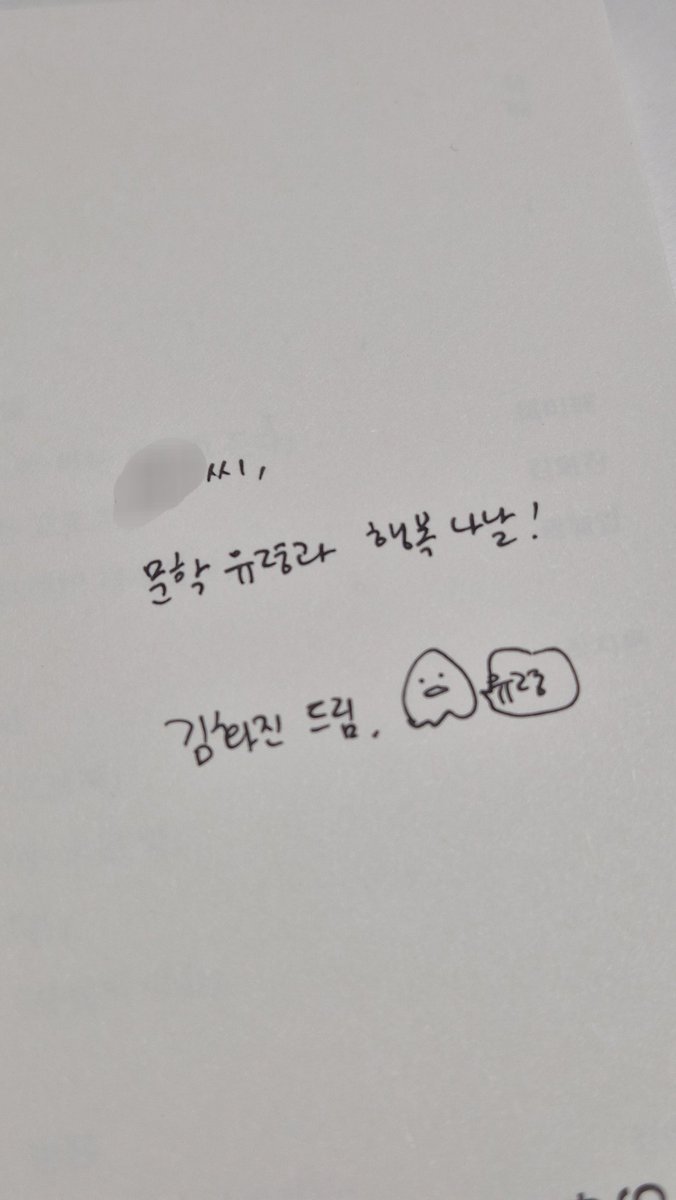 씨,
문학 유령과 행복 나날!
김화진 드림.
유령